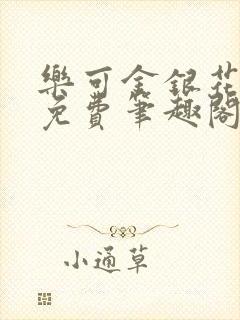 樂可金銀花
免費筆趣閣
小通草